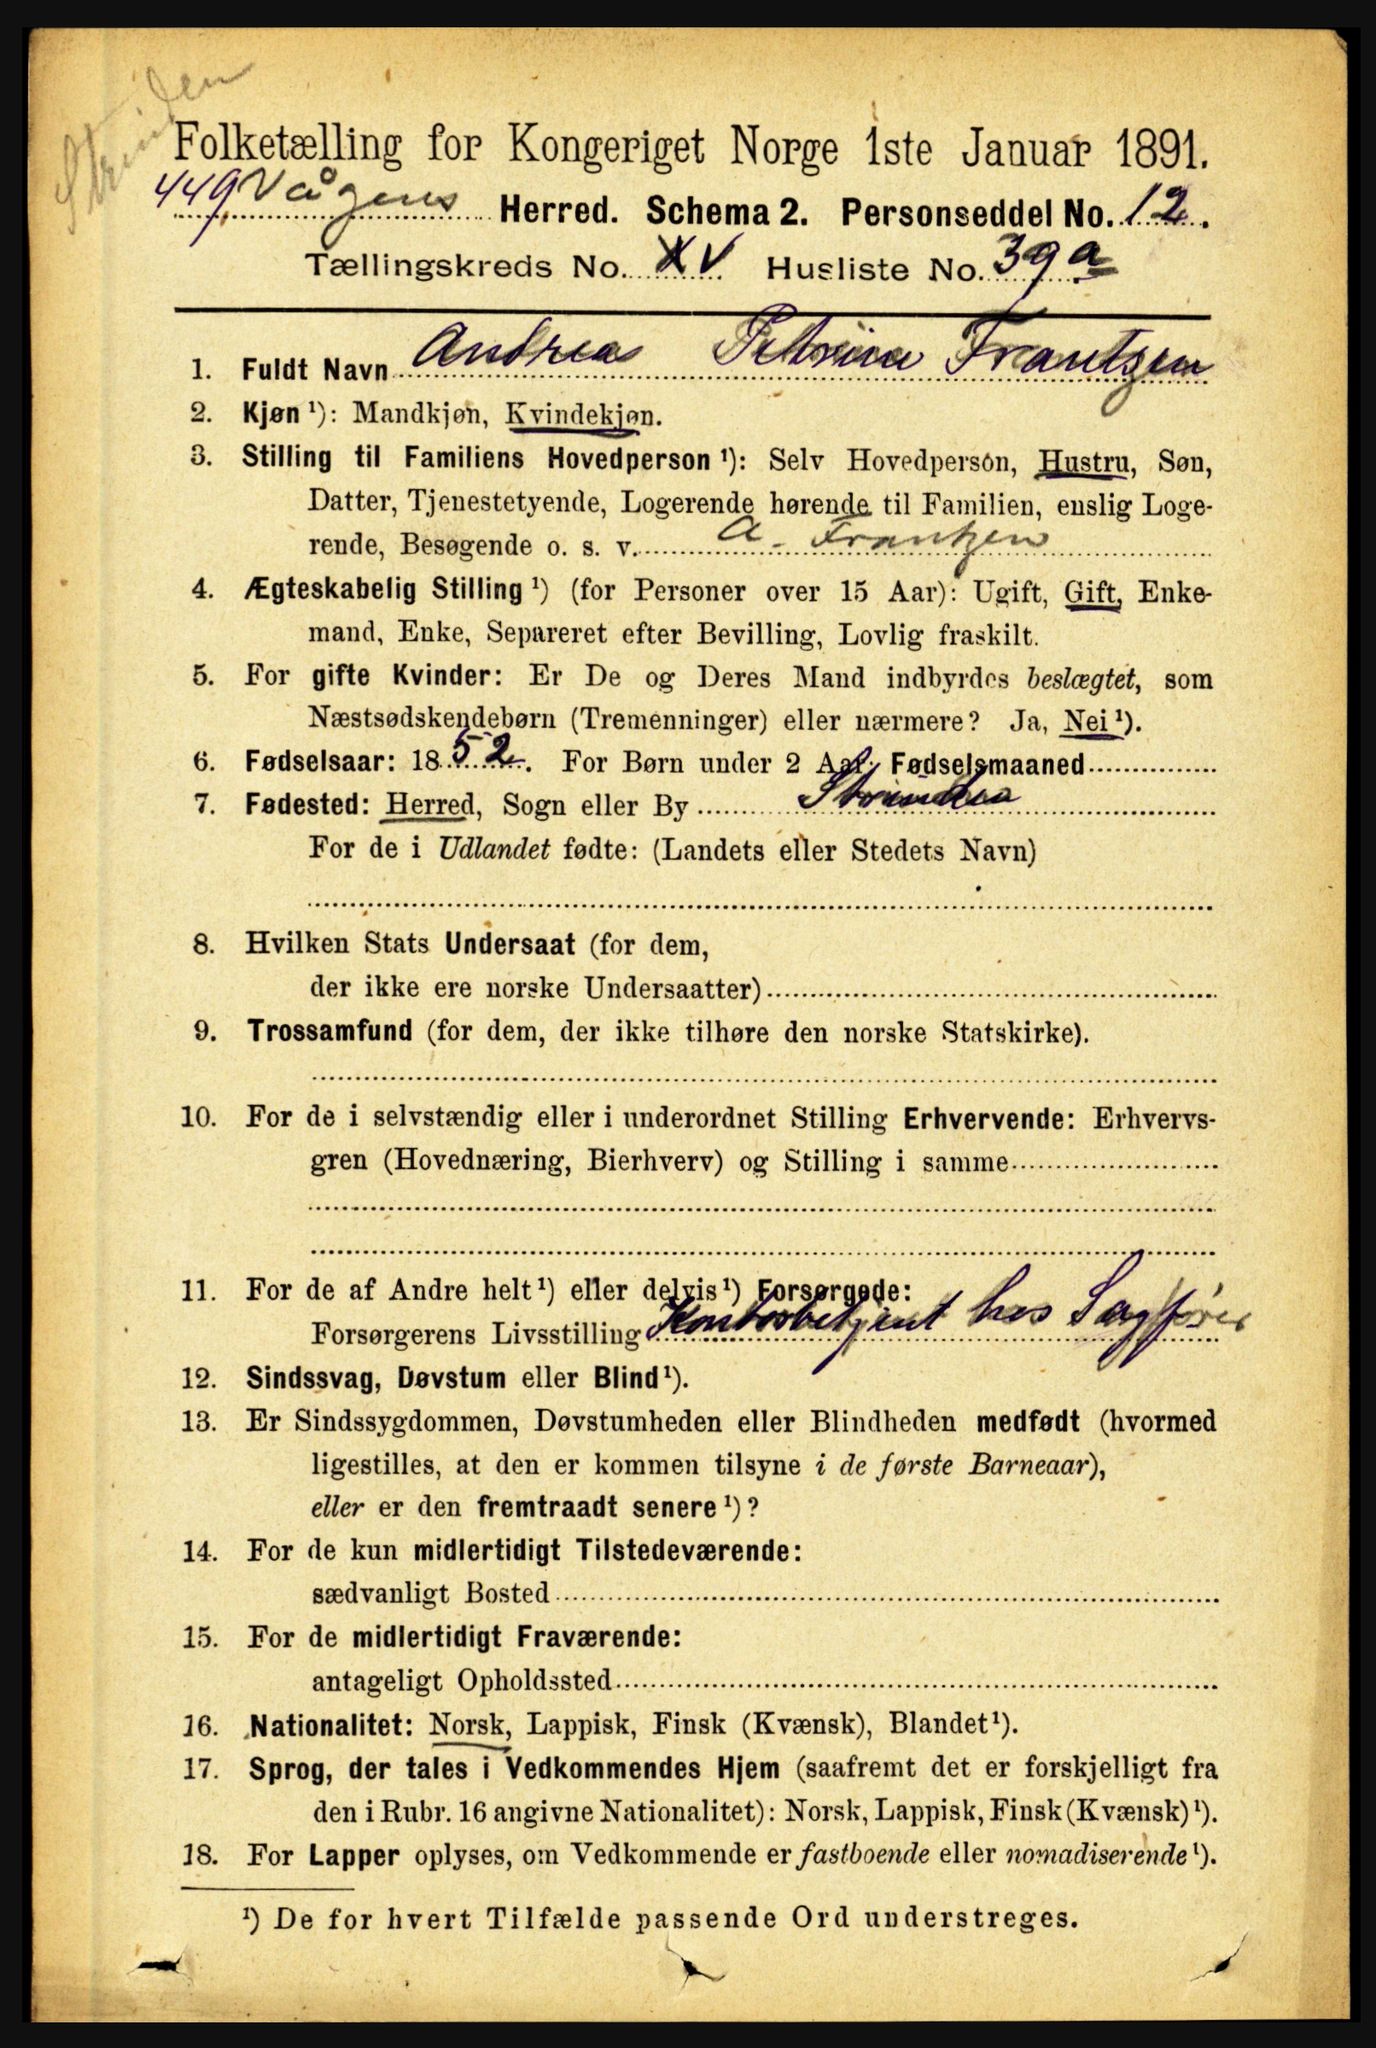 Strinden
Folketælling for Kongeriget Norge 1ste Januar 1891.
449 Vågens Herred. Schema 2. Personseddel No. 12.
Tællingskreds No. XV Husliste No. 39a
1. Fuldt Navn Andrea Petrine Frantzen
2. Kjøn ¹): Mandkjøn, Kvindekjøn.
3. Stilling til Familiens Hovedperson ¹): Selv Hovedperson, Hustru, Søn,
Datter, Tjenestetyende, Logerende hørende til Familien, enslig Loge-
rende, Besøgende o. s. v. A. Frantzen
4. Ægteskabelig Stilling ¹) (for Personer over 15 Aar): Ugift, Gift, Enke-
mand, Enke, Separeret efter Bevilling, Lovlig fraskilt.
5. For gifte Kvinder: Er De og Deres Mand indbyrdes beslægtet, som
Næstsødskendebørn (Tremenninger) eller nærmere? Ja, Nei ¹).
6. Fødselsaar: 1852. For Børn under 2 Aar: Fødselsmaaned
7. Fødested: Herred, Sogn eller By Strinden
For de i Udlandet fødte: (Landets eller Stedets Navn)
8. Hvilken Stats Undersaat (for dem,
der ikke ere norske Undersaatter)
9. Trossamfund (for dem, der ikke tilhøre den norske Statskirke).
10. For de i selvstændig eller i underordnet Stilling Erhvervende: Erhvervs-
gren (Hovednæring, Bierhverv) og Stilling i samme
11. For de af Andre helt ¹) eller delvis ¹) Forsørgede:
Forsørgerens Livsstilling Kontorbetjent hos Sagfører
12. Sindssvag, Døvstum eller Blind ¹).
13. Er Sindssygdommen, Døvstumheden eller Blindheden medfødt (hvormed
ligestilles, at den er kommen tilsyne i de første Barneaar),
eller er den fremtraadt senere ¹)?
14. For de kun midlertidigt Tilstedeværende:
sædvanligt Bosted
15. For de midlertidigt Fraværende:
antageligt Opholdssted
16. Nationalitet: Norsk, Lappisk, Finsk (Kvænsk), Blandet ¹).
17. Sprog, der tales i Vedkommendes Hjem (saafremt det er forskjelligt fra
den i Rubr. 16 angivne Nationalitet): Norsk, Lappisk, Finsk (Kvænsk) ¹).
18. For Lapper oplyses, om Vedkommende er fastboende eller nomadiserende ¹).
¹) De for hvert Tilfælde passende Ord understreges.